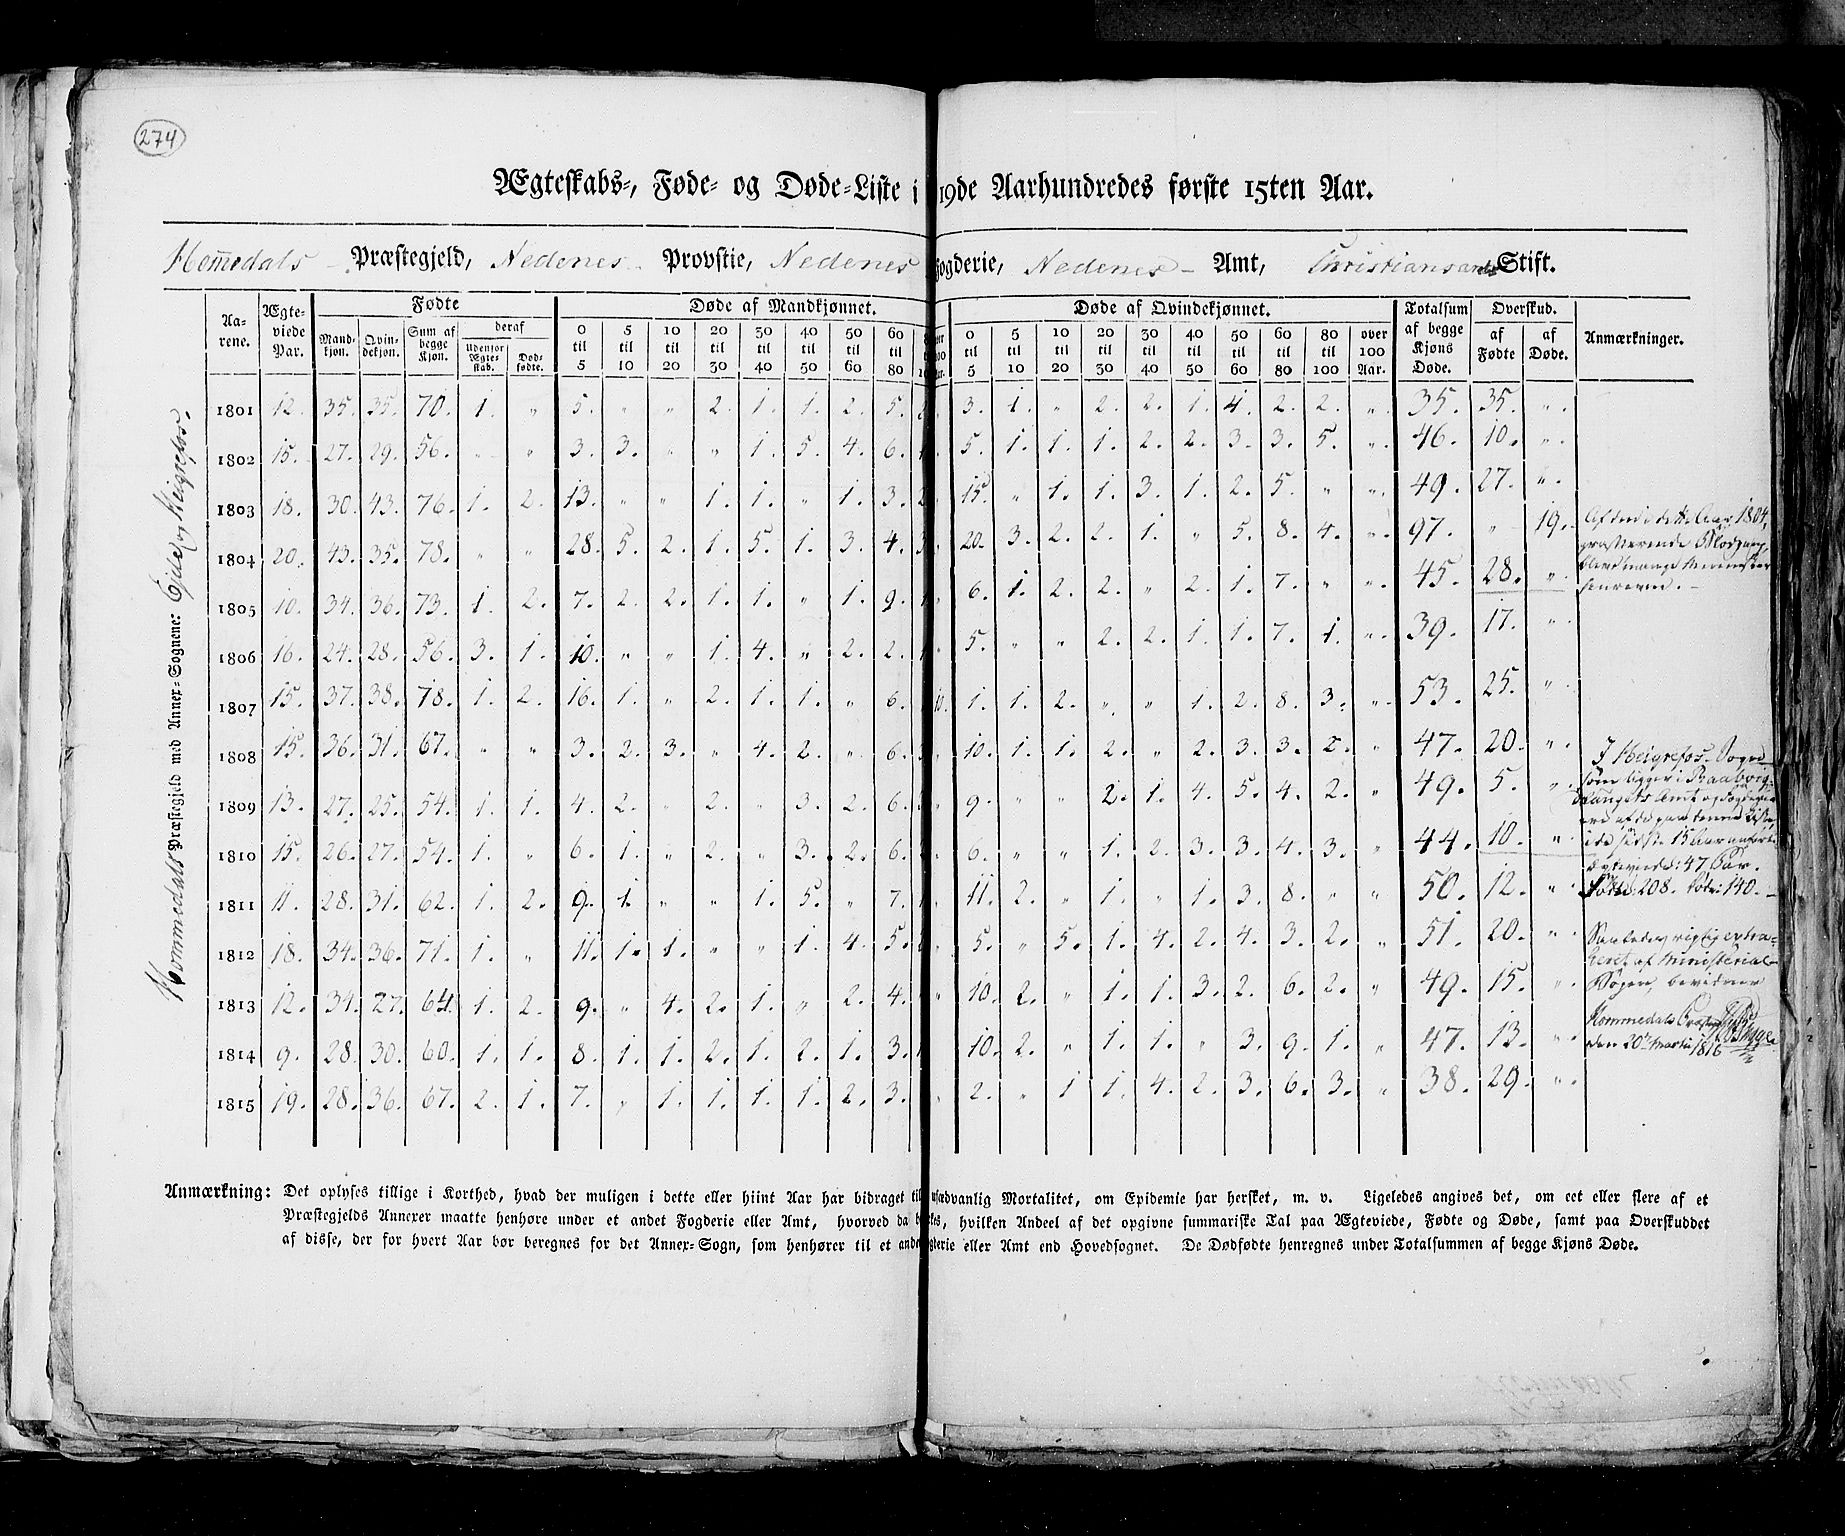 274
Ægteskabs-, Føde- og Døde-Liste i 19de Aarhundredes første 15ten Aar.
Hommedals Præstegjeld, Nedenes Provstie, Nedenes Fogderie, Nedenes Amt, Christiansands Stift.
Hommedals Præstegjeld med Annex-Sognene: Eide og Heigrefos.
Aarene. Ægteviede Par. Fødte Døde af Mandkjønnet. Døde af Qvindekjønnet. Totalsum af begge Kjøns Døde. Overskud. Anmærkninger.
Mandkjøn. Qvindekjøn. Sum af begge Kjøn. deraf udenfor Ægtestab. Dødfødte. 0 til 5 5 til 10 10 til 20 20 til 30 30 til 40 40 til 50 50 til 60 60 til 80 0 til 5 5 til 10 10 til 20 20 til 30 30 til 40 40 til 50 50 til 60 60 til 80 80 til 100 over 100 Aar. af Fødte af Døde.
1801 12. 35. 35. 70. 1. " 5. " " 2. 1. 1. 2. 5. 3. 1. " 2. 2. 1. 4. 2. 2. " 35. 35. "
1802 15. 27. 29. 56. " " 3. 3. " " 1. 5. 4. 6. 5. 1. 1. 1. 2. 2. 3. 3. 5. " 46. 10. "
1803 18. 30. 43. 76. 1. 2. 13. " " 1. 1. " 1. 3. 15. " 1. 1. 3. 1. 2. 5. " " 49. 27. "
1804 20. 43. 35. 78. " " 28. 5. 2. 1. 5. 1. 3. 4. 20. 3. 2. 2. 1. " 5. 8. 4. " 97. " 19.
1805 10. 34. 36. 73. 1. 2. 7. 2. 2. 1. 1. " 1. 9. 6. 1. 2. 2. " 2. 1. 7. " " 45. 28. "
1806 16. 24. 28. 56. 3. 1. 10. " " 1. 4. " 2. 2. 5. " " 2. 2. 1. 1. 7. 1. " 39. 17. "
1807 15. 37. 38. 78. 1. 2. 16. 1. " 2. 1. 1. " 6. 1. 1. 2. " " 1. 2. 8. 3. " 53. 25. "
1808 15. 36. 31. 67. " " 3. 2. 3. " 4. 2. " 6. 10. 1. 1. 2. " 2. 3. 3. 2. " 47. 20. "
1809 13. 27. 25. 54. 1. 1. 4. 2. " 2. " 3. 2. 6. 9. " " 2. 1. 4. 5. 4. 2. " 49. 5. "
1810 15. 26. 27. 54. 1. " 6. 1. " 2. " 3. 2. 6. 6. " " 1. 2. 3. 3. 4. 3. " 44. 10. "
1811 11. 28. 31. 62. 1. 2. 9. 1. " " 1. 5. " 7. 11. 2. " 1. " 1. 3. 8. " " 50. 12. "
1812 18. 34. 36. 71. 1. " 11. 1. 1. " " 1. 4. 5. 5. " 5. 1. 4. 2. 4. 3. 2. " 51. 20. "
1813 12. 34. 27. 64. 1. 2. 9. " 4. 2. 1. " 2. 4. 10. 2. " 1. 1. 3. 2. 6. 2. " 49. 15. "
1814 9. 28. 30. 60. 1. 1. 8. 1. 1. 2. 1. 2. 1. 3. 10. 2. " 1. 1. " 3. 9. 1. " 47. 13. "
1815 19. 28. 36. 67. 2. 1. 7. " 1. 1. 1. 1. 2. 3. 2. " 1 1. 4. 2. 3. 6. 3. " 38. 29. "
Af den i dette Aar 1804,
grasserende Blodgang,
bleve mange Mennesker
henrevne.
I Heigrefos Sogn
som ligger i Raabyg-
elaugets Amt og Fogderie
ere af de paa denne Liste
i de sidste 15 Aar anførte
Ægteviede: 47 Par.
Fødte: 208. Døde: 140.
Saaledes rigtig extra-
heret af Ministerial-
Bogen, bevidner
Hommedals
den 20de Martii 1816
Anmærkning: Det oplyses tillige i Korthed, hvad der muligen i dette eller hiint Aar har bidraget til usædvanlig Mortalitet, om Epidemie har hersket, m. v. Ligeledes angives det, om eet eller flere af et
Præstegjelds Annexer maatte henhøre under et andet Fogderie eller Amt, hvorved da hvilken Andeel af det opgivne summariske Tal paa Ægteviede, Fødte og Døde, samt paa Overskuddet
af disse, der for hvert Aar bør beregnes for det Annex-Sogn, som henhører til et andet Fogderie eller Amt end Hovedsognet. De Dødfødte henregnes under Totalsummen af begge Kjøns Døde.